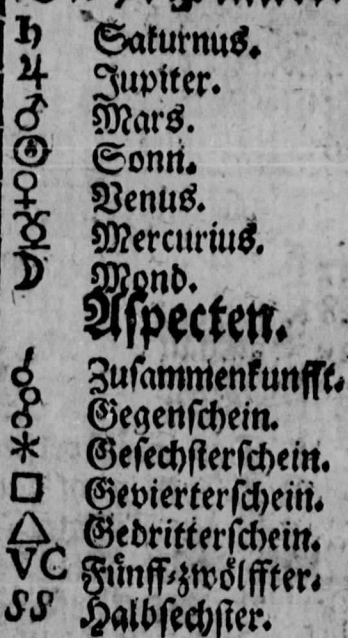 ♄ Saturnus.
♃ Jupiter.
♂ Mars.
☉ Sonn.
♀ Venus.
☿ Mercurius.
☽ Mond.
Aspecten.
☌ Zusammenkunfft.
☍ Gegenschein.
⚹ Gesechsterschein.
□ Gevierterschein.
△ Gedritterschein.
VC Fünff-zwölffter.
SS Halbsechster.